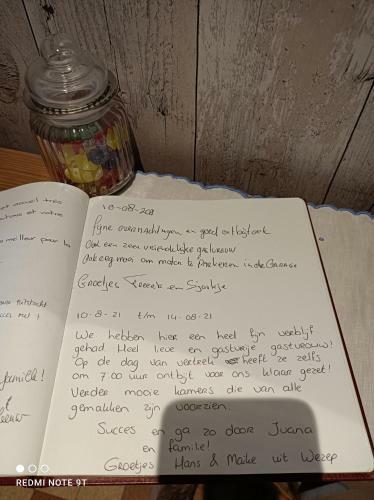 meilleur pour la
famille!
10-08-2021
Fijne overnachtingen en goed ontbijt ook
Ook een zeer vriendelijke gastvrouw
Ook erg mooi om moten te in de Garage
Groetjes en Sjoukje
10-8-21 t/m 14-08-21
We hebben hier een heel fijn verblijf
gehad Heel lieve en gastvrije gastvrouw!
Op de dag van vertrek heeft ze zelfs
om 7.00 uur ontbijt voor ons klaar gezet!
Verder mooie kamers die van alle
gemakken zijn voorzien.
Succes en ga zo door Juana
en familie!
Groetjes Hans & Maike uit Wezep
REDMI NOTE 9T